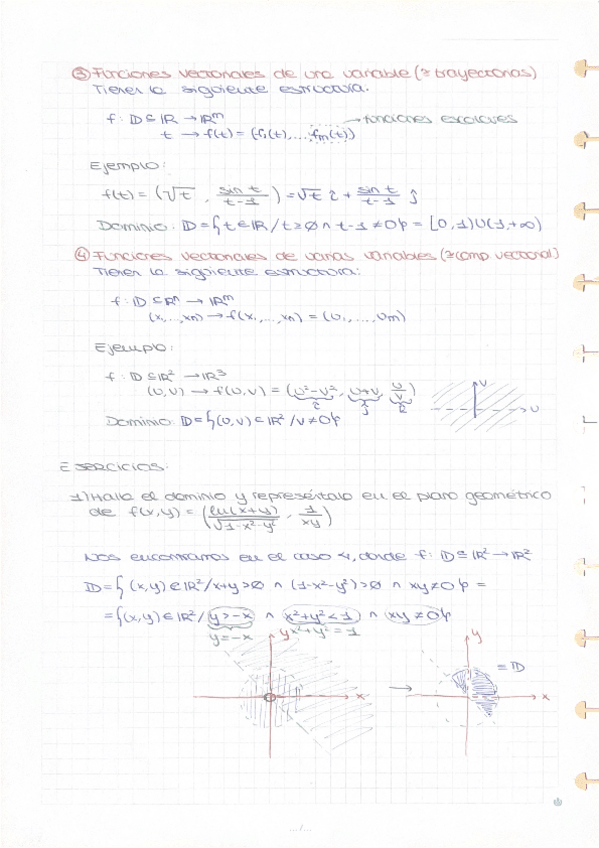 ③ Funciones vectoriales de una variable (≈ trayectorias)
Tienen la siguiente estructura:
f: D⊆ℝ → ℝᵐ
t → f(t) = (f₁(t),...,fₘ(t)) → funciones escalares
Ejemplo:
f(t) = (√t, sin t / t-1) = √t î + sin t / t-1 ĵ
Dominio: D = {t ∈ ℝ / t ≥ 0 ∧ t-1 ≠ 0} = [0,1) ∪ (1,+∞)
④ Funciones vectoriales de varias variables (≈ comp. vectorial)
Tienen la siguiente estructura:
f: D ⊆ ℝⁿ → ℝᵐ
(x₁,...,xₙ) → f(x₁,...,xₙ) = (u₁,...,uₘ)
Ejemplo:
f: D ⊆ ℝ² → ℝ³
(u,v) → f(u,v) = (u²-v², u+v, u/v)
î ĵ k̂
v
u
Dominio: D = {(u,v) ∈ ℝ² / v ≠ 0}
EJERCICIOS:
1) Halla el dominio y represéntalo en el plano geométrico
de f(x,y) = (ln(x+y) / √1-x²-y², 1/xy)
Nos encontramos en el caso 4, donde f: D ⊆ ℝ² → ℝ²
D = {(x,y) ∈ ℝ² / x+y > 0 ∧ (1-x²-y²) > 0 ∧ xy ≠ 0} =
= {(x,y) ∈ ℝ² / y > -x ∧ x²+y² < 1 ∧ xy ≠ 0}
y = -x
y
x²+y² = 1
x
→
y
= D
x
.../...